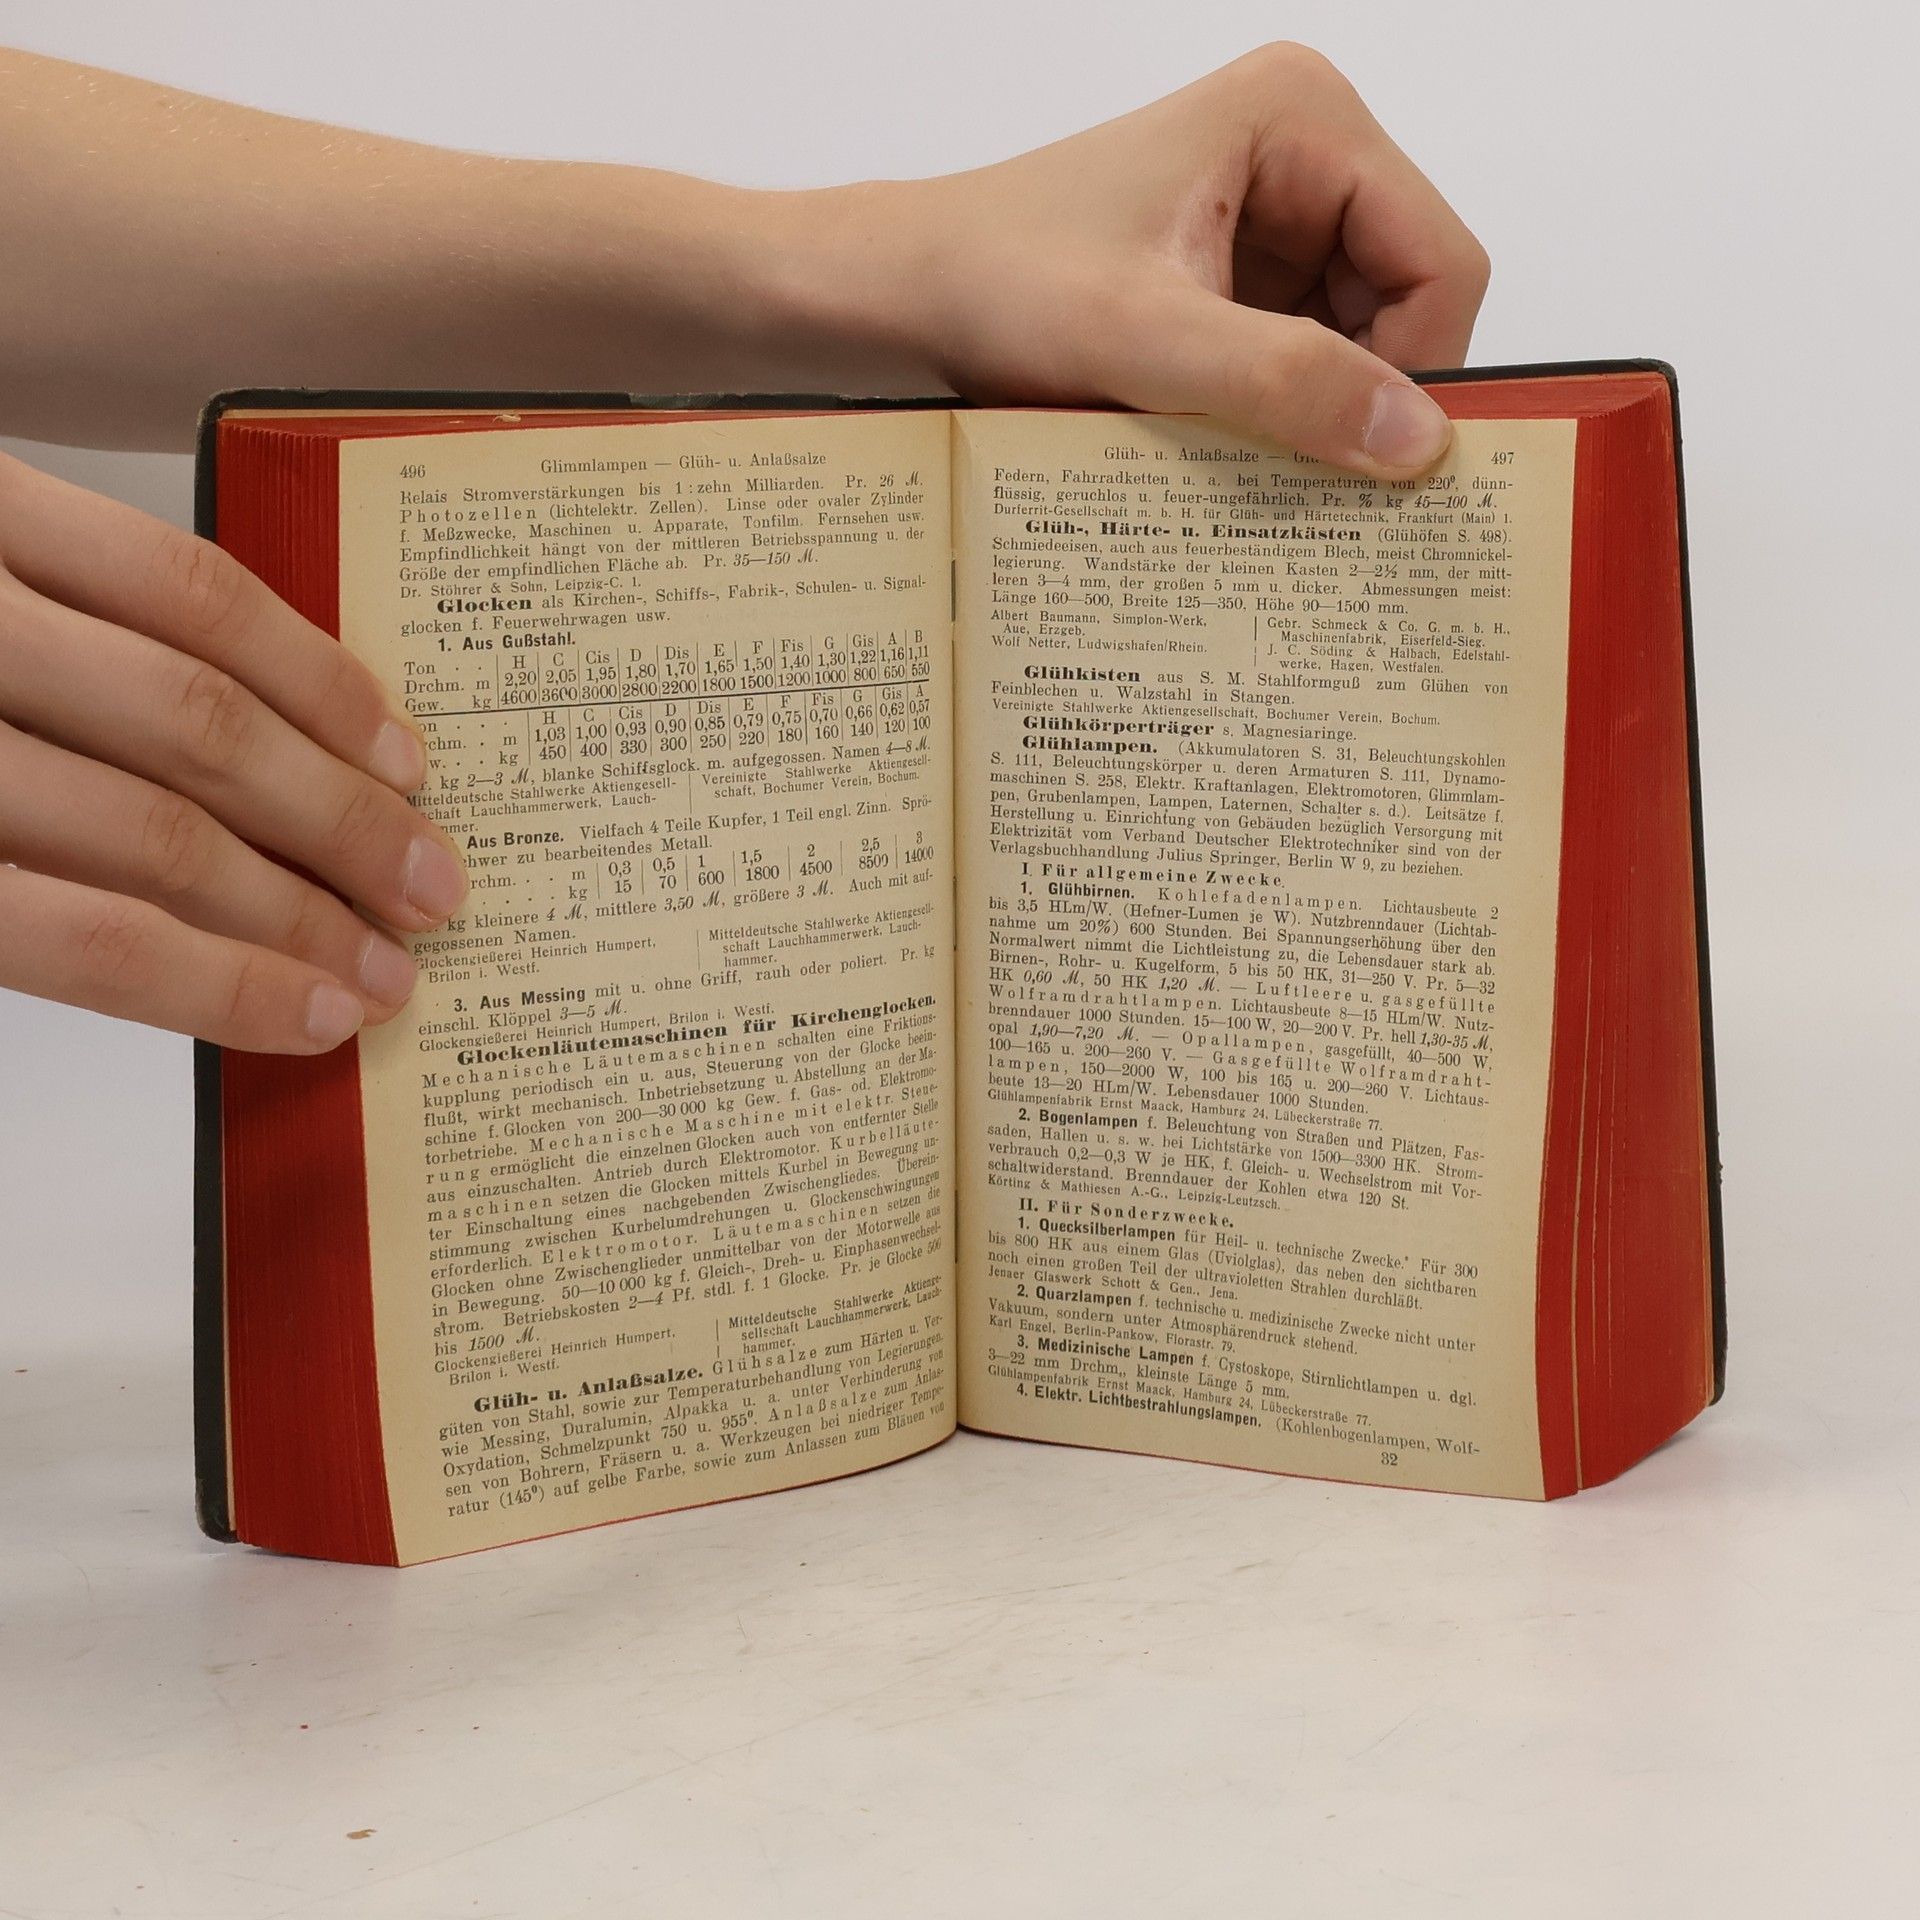 496 Glimmlampen — Glüh- u. Anlaßsalze
Relais Stromverstärkungen bis 1 : zehn Milliarden. Pr. 26 ℳ.
Photozellen (lichtelektr. Zellen). Linse oder ovaler Zylinder
f. Meßzwecke, Maschinen u. Apparate, Tonfilm. Fernsehen usw.
Empfindlichkeit hängt von der mittleren Betriebsspannung u. der
Größe der empfindlichen Fläche ab. Pr. 35—150 ℳ.
Dr. Stöhrer & Sohn, Leipzig-C. 1.
Glocken als Kirchen-, Schiffs-, Fabrik-, Schulen- u. Signal-
glocken f. Feuerwehrwagen usw.
1. Aus Gußstahl.
Ton . . | H | C | Cis | D | Dis | E | F | Fis | G | Gis | A | B
Drchm. m | 2,20 | 2,05 | 1,95 | 1,80 | 1,70 | 1,65 | 1,50 | 1,40 | 1,30 | 1,22 | 1,16 | 1,11
Gew. kg | 4600 | 3600 | 3000 | 2800 | 2200 | 1800 | 1500 | 1200 | 1000 | 800 | 650 | 550
on . . . | H | C | Cis | D | Dis | E | F | Fis | G | Gis | A
rchm. . m | 1,03 | 1,00 | 0,93 | 0,90 | 0,85 | 0,79 | 0,75 | 0,70 | 0,66 | 0,62 | 0,57
w. . . kg | 450 | 400 | 330 | 300 | 250 | 220 | 180 | 160 | 140 | 120 | 100
r. kg 2—3 ℳ, blanke Schiffsglock. m. aufgegossen. Namen 4—8 ℳ.
Mitteldeutsche Stahlwerke Aktiengesell-
schaft Lauchhammerwerk, Lauch-
mmer.
Vereinigte Stahlwerke Aktiengesell-
schaft, Bochumer Verein, Bochum.
Aus Bronze. Vielfach 4 Teile Kupfer, 1 Teil engl. Zinn. Sprö-
hwer zu bearbeitendes Metall.
rchm. . . m | 0,3 | 0,5 | 1 | 1,5 | 2 | 2,5 | 3
. . . . . kg | 15 | 70 | 600 | 1800 | 4500 | 8500 | 14000
kg kleinere 4 ℳ, mittlere 3,50 ℳ, größere 3 ℳ. Auch mit auf-
gegossenen Namen.
Glockengießerei Heinrich Humpert,
Brilon i. Westf.
Mitteldeutsche Stahlwerke Aktiengesell-
schaft Lauchhammerwerk, Lauch-
hammer.
3. Aus Messing mit u. ohne Griff, rauh oder poliert. Pr. kg
einschl. Klöppel 3—5 ℳ.
Glockengießerei Heinrich Humpert, Brilon i. Westf.
Glockenläutemaschinen für Kirchenglocken.
Mechanische Läutemaschinen schalten eine Friktions-
kupplung periodisch ein u. aus, Steuerung von der Glocke beein-
flußt, wirkt mechanisch. Inbetriebsetzung u. Abstellung an der Ma-
schine f. Glocken von 200—30 000 kg Gew. f. Gas- od. Elektromo-
torbetriebe. Mechanische Maschine mit elektr. Steue-
rung ermöglicht die einzelnen Glocken auch von entfernter Stelle
aus einzuschalten. Antrieb durch Elektromotor. Kurbelläute-
maschinen setzen die Glocken mittels Kurbel in Bewegung un-
ter Einschaltung eines nachgebenden Zwischengliedes. Überein-
stimmung zwischen Kurbelumdrehungen u. Glockenschwingungen
erforderlich. Elektromotor. Läutemaschinen setzen die
Glocken ohne Zwischenglieder unmittelbar von der Motorwelle aus
in Bewegung. 50—10 000 kg f. Gleich-, Dreh- u. Einphasenwechsel-
strom. Betriebskosten 2—4 Pf. stdl. f. 1 Glocke. Pr. je Glocke 500
bis 1500 ℳ.
Glockengießerei Heinrich Humpert,
Brilon i. Westf.
Mitteldeutsche Stahlwerke Aktienge-
sellschaft Lauchhammerwerk, Lauch-
hammer.
Glüh- u. Anlaßsalze. Glühsalze zum Härten u. Ver-
güten von Stahl, sowie zur Temperaturbehandlung von Legierungen,
wie Messing, Duralumin, Alpakka u. a. unter Verhinderung von
Oxydation, Schmelzpunkt 750 u. 955⁰. Anlaßsalze zum Anlas-
sen von Bohrern, Fräsern u. a. Werkzeugen bei niedriger Tempe-
ratur (145⁰) auf gelbe Farbe, sowie zum Anlassen zum Bläuen von
Glüh- u. Anlaßsalze — 497
Federn, Fahrradketten u. a. bei Temperaturen von 220⁰, dünn-
flüssig, geruchlos u. feuer-ungefährlich. Pr. % kg 45—100 ℳ.
Durferrit-Gesellschaft m. b. H. für Glüh- und Härtetechnik, Frankfurt (Main) 1.
Glüh-, Härte- u. Einsatzkästen (Glühöfen S. 498).
Schmiedeeisen, auch aus feuerbeständigem Blech, meist Chromnickel-
legierung. Wandstärke der kleinen Kasten 2—2½ mm, der mitt-
leren 3—4 mm, der großen 5 mm u. dicker. Abmessungen meist:
Länge 160—500, Breite 125—350, Höhe 90—1500 mm.
Albert Baumann, Simplon-Werk,
Aue, Erzgeb.
Wolf Netter, Ludwigshafen/Rhein.
Gebr. Schmeck & Co. G. m. b. H.,
Maschinenfabrik, Eiserfeld-Sieg.
J. C. Söding & Halbach, Edelstahl-
werke, Hagen, Westfalen.
Glühkisten aus S. M. Stahlformguß zum Glühen von
Feinblechen u. Walzstahl in Stangen.
Vereinigte Stahlwerke Aktiengesellschaft, Bochumer Verein, Bochum.
Glühkörperträger s. Magnesiaringe.
Glühlampen. (Akkumulatoren S. 31, Beleuchtungskohlen
S. 111, Beleuchtungskörper u. deren Armaturen S. 111, Dynamo-
maschinen S. 258, Elektr. Kraftanlagen, Elektromotoren, Glimmlam-
pen, Grubenlampen, Lampen, Laternen, Schalter s. d.). Leitsätze f.
Herstellung u. Einrichtung von Gebäuden bezüglich Versorgung mit
Elektrizität vom Verband Deutscher Elektrotechniker sind von der
Verlagsbuchhandlung Julius Springer, Berlin W 9, zu beziehen.
I. Für allgemeine Zwecke.
1. Glühbirnen. Kohlefadenlampen. Lichtausbeute 2
bis 3,5 HLm/W. (Hefner-Lumen je W). Nutzbrenndauer (Lichtab-
nahme um 20%) 600 Stunden. Bei Spannungserhöhung über den
Normalwert nimmt die Lichtleistung zu, die Lebensdauer stark ab.
Birnen-, Rohr- u. Kugelform, 5 bis 50 HK, 31—250 V. Pr. 5—32
HK 0,60 ℳ, 50 HK 1,20 ℳ. — Luftleere u. gasgefüllte
Wolframdrahtlampen. Lichtausbeute 8—15 HLm/W. Nutz-
brenndauer 1000 Stunden. 15—100 W, 20—200 V. Pr. hell 1,30-35 ℳ,
opal 1,90—7,20 ℳ. — Opallampen, gasgefüllt, 40—500 W,
100—165 u. 200—260 V. — Gasgefüllte Wolframdraht-
lampen, 150—2000 W, 100 bis 165 u. 200—260 V. Lichtaus-
beute 13—20 HLm/W. Lebensdauer 1000 Stunden.
Glühlampenfabrik Ernst Maack, Hamburg 24, Lübeckerstraße 77.
2. Bogenlampen f. Beleuchtung von Straßen und Plätzen, Fas-
saden, Hallen u. s. w. bei Lichtstärke von 1500—3300 HK. Strom-
verbrauch 0,2—0,3 W je HK, f. Gleich- u. Wechselstrom mit Vor-
schaltwiderstand. Brenndauer der Kohlen etwa 120 St.
Körting & Mathiesen A.-G., Leipzig-Leutzsch.
II. Für Sonderzwecke.
1. Quecksilberlampen für Heil- u. technische Zwecke. Für 300
bis 800 HK aus einem Glas (Uviolglas), das neben den sichtbaren
noch einen großen Teil der ultravioletten Strahlen durchläßt.
Jenaer Glaswerk Schott & Gen., Jena.
2. Quarzlampen f. technische u. medizinische Zwecke nicht unter
Vakuum, sondern unter Atmosphärendruck stehend.
Karl Engel, Berlin-Pankow, Florastr. 79.
3. Medizinische Lampen f. Cystoskope, Stirnlichtlampen u. dgl.
3—22 mm Drchm., kleinste Länge 5 mm.
Glühlampenfabrik Ernst Maack, Hamburg 24, Lübeckerstraße 77.
4. Elektr. Lichtbestrahlungslampen. (Kohlenbogenlampen, Wolf-
32